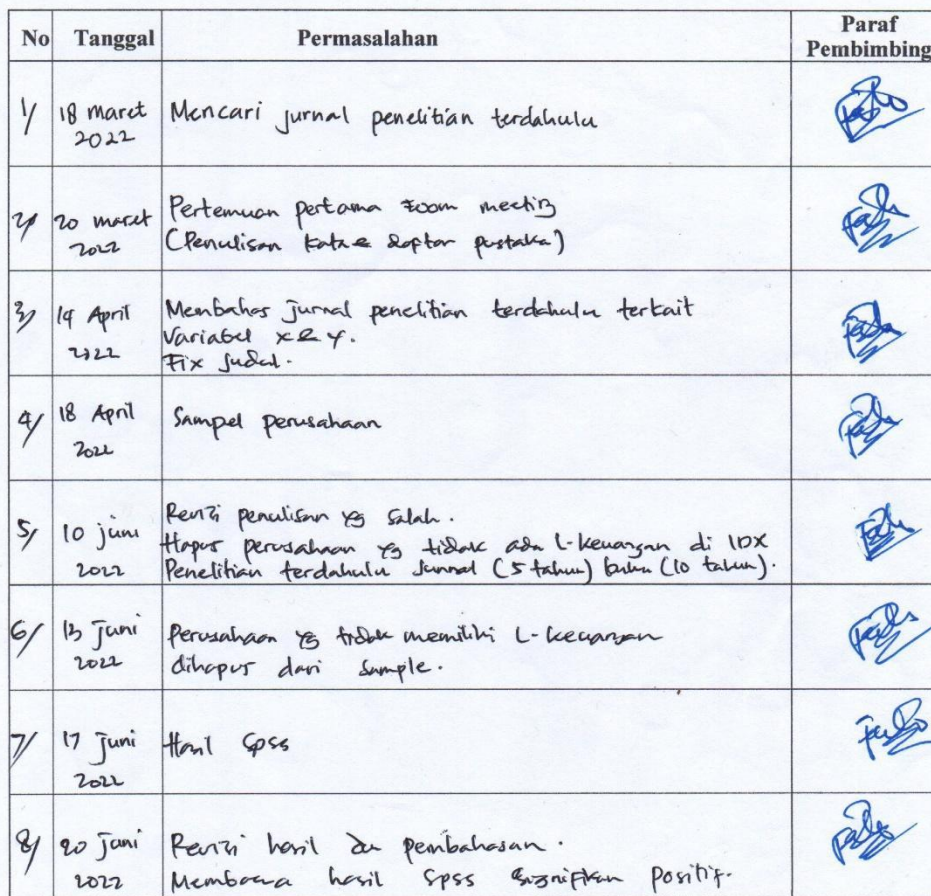 No Tanggal Permasalahan Paraf Pembimbing
1/ 18 maret 2022 Mencari jurnal penelitian terdahulu
2/ 20 maret 2022 Pertemuan pertama zoom meeting
(Penulisan kata & daftar pustaka)
3/ 14 April 2022 Membahas jurnal penelitian terdahulu terkait
Variabel x & y.
Fix judul.
4/ 18 April 2022 Sampel perusahaan
5/ 10 juni 2022 Revisi penulisan yg salah.
Hapus perusahaan yg tidak ada L-keuangan di IDX
Penelitian terdahulu jurnal (5 tahun) buku (10 tahun).
6/ 13 juni 2022 perusahaan yg tidak memiliki L-keuangan
dihapus dari sample.
7/ 17 juni 2022 Hasil SPSS
8/ 20 juni 2022 Revisi hasil dan pembahasan.
Membaca hasil SPSS signifikan positif.